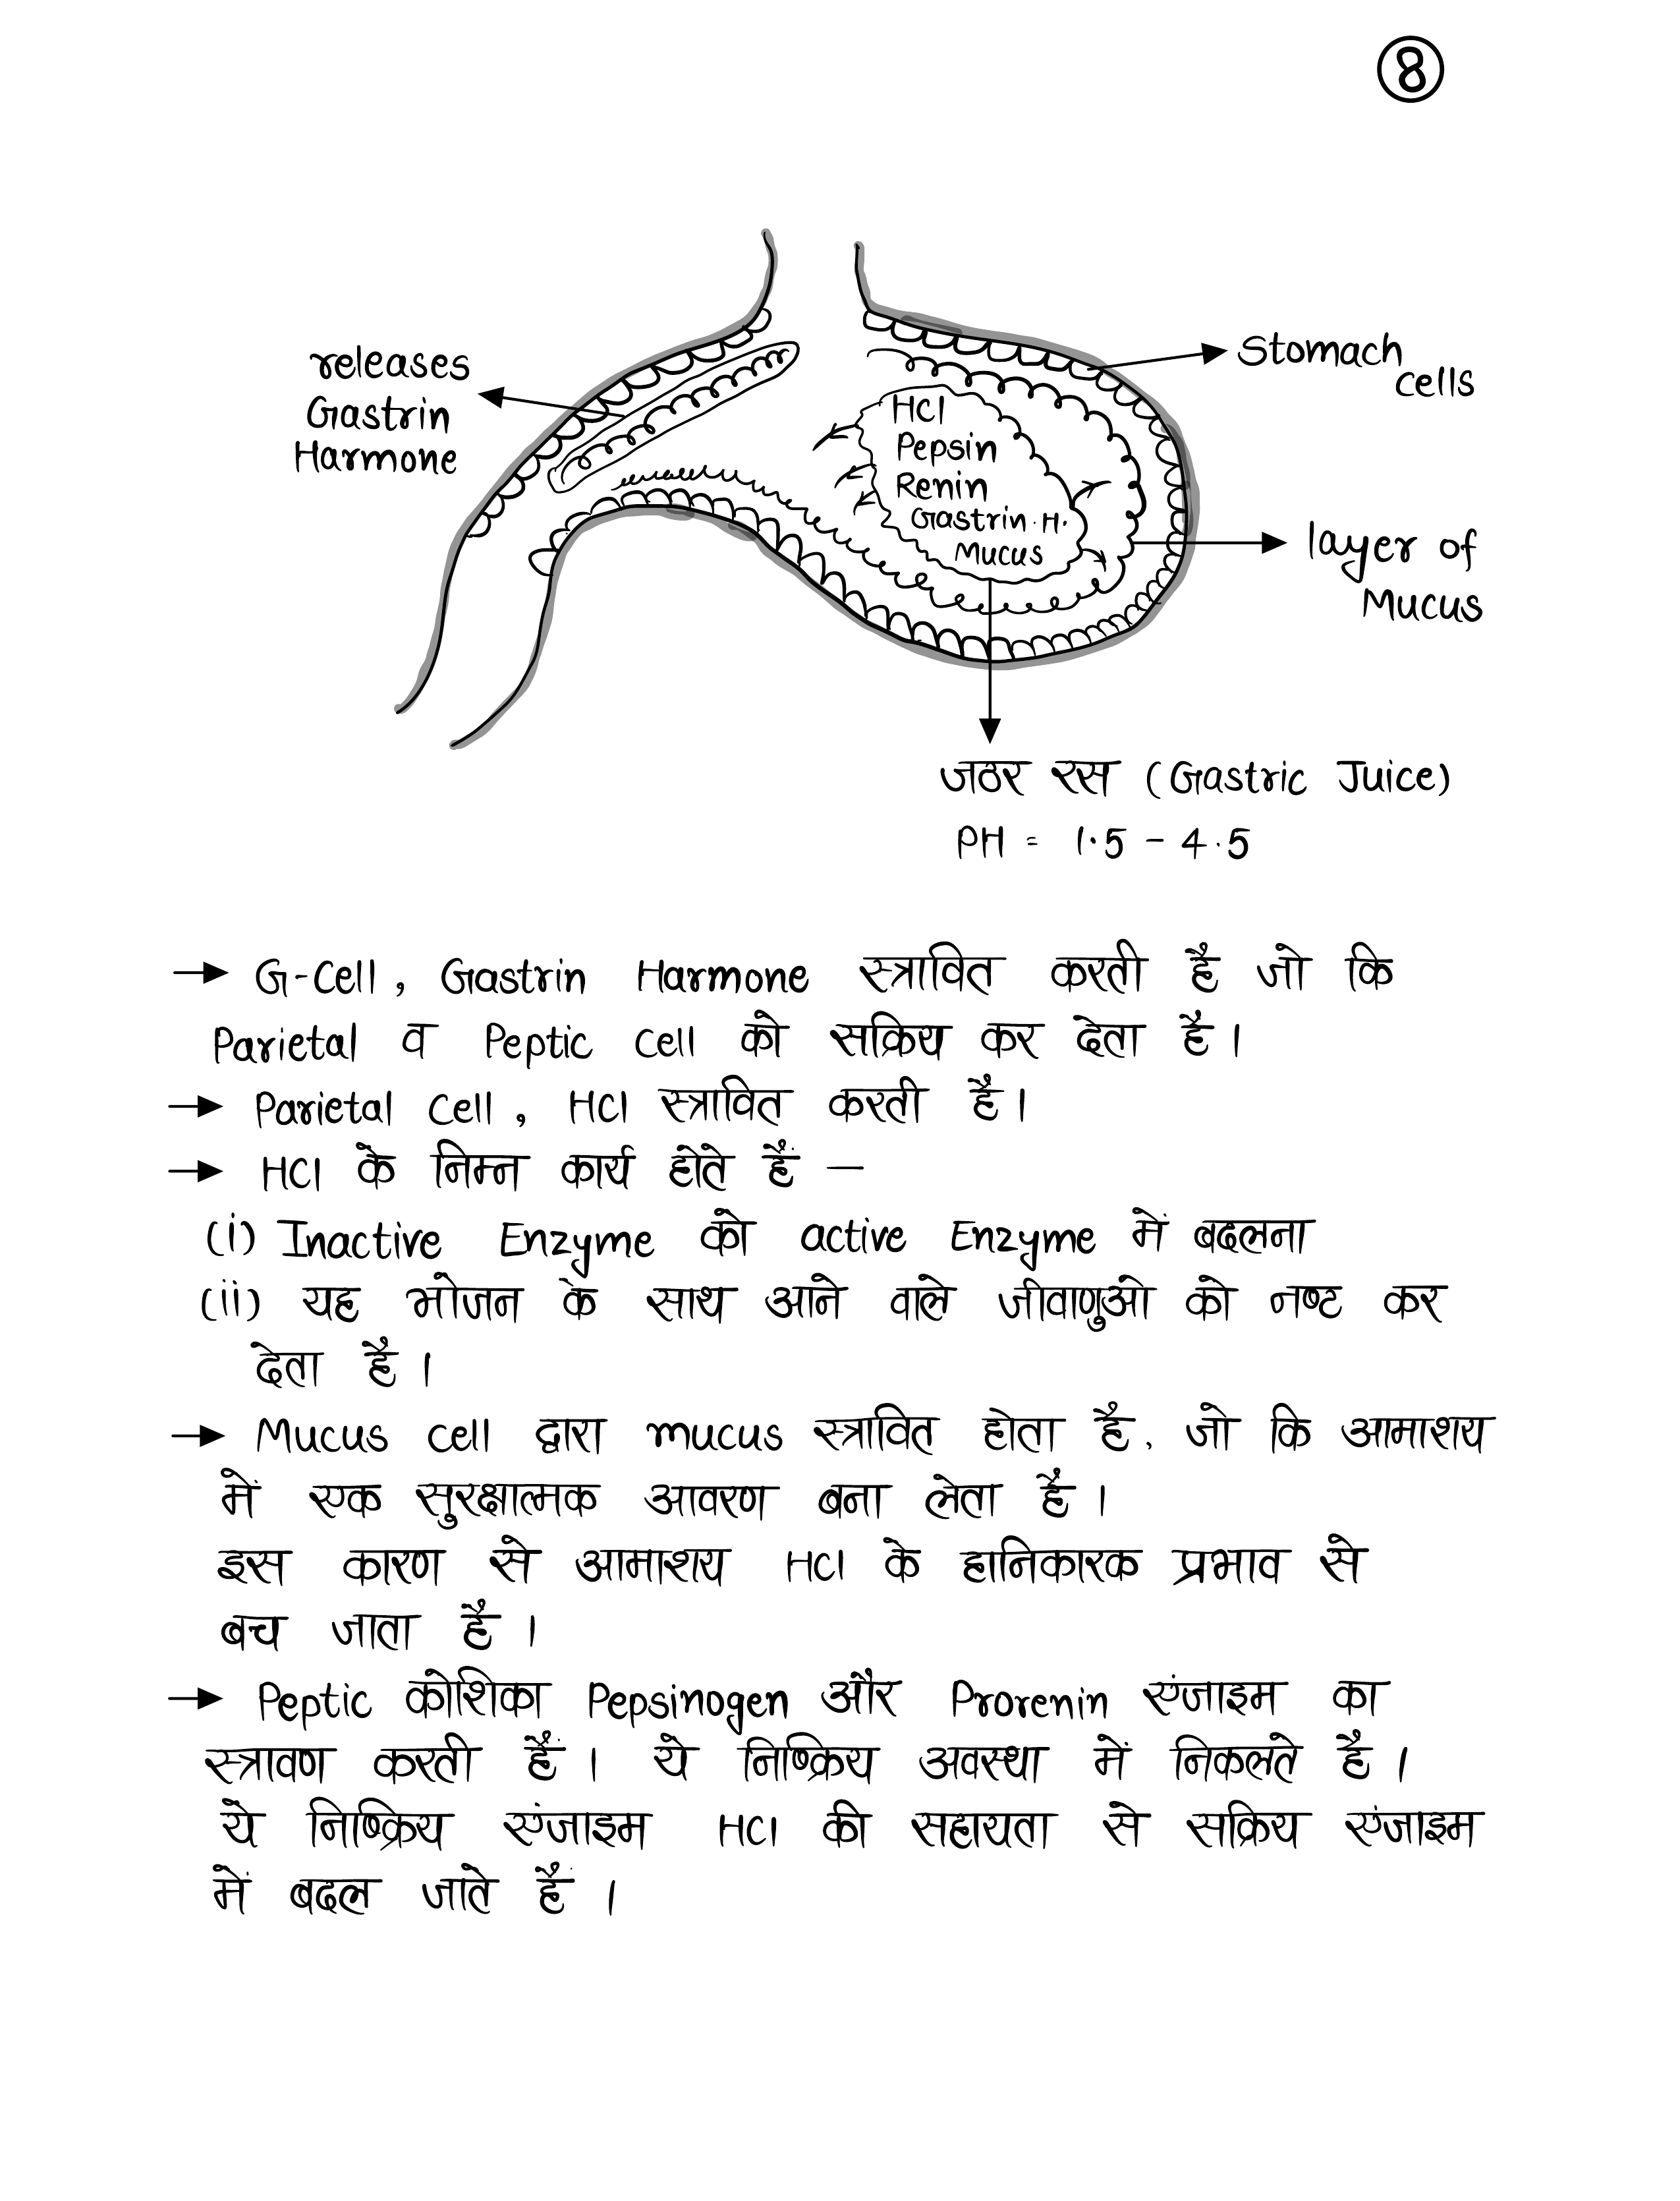 8
releases
Gastrin
Harmone
Stomach
cells
HCl
Pepsin
Renin
Gastrin.H.
Mucus
layer of
Mucus
जठर रस (Gastric Juice)
PH = 1.5 - 4.5
→ G-Cell, Gastrin Harmone स्त्रावित करती है जो कि
Parietal व Peptic Cell को सक्रिय कर देता है।
→ Parietal Cell, HCl स्त्रावित करती है।
→ HCl के निम्न कार्य होते हैं –
(i) Inactive Enzyme को active Enzyme में बदलना
(ii) यह भोजन के साथ आने वाले जीवाणुओ को नष्ट कर
देता है।
→ Mucus cell द्वारा mucus स्त्रावित होता है, जो कि आमाशय
में एक सुरक्षात्मक आवरण बना लेता है।
इस कारण से आमाशय HCl के हानिकारक प्रभाव से
बच जाता है।
→ Peptic कोशिका Pepsinogen और Prorenin एंजाइम का
स्त्रावण करती हैं। ये निष्क्रिय अवस्था में निकलते है।
ये निष्क्रिय एंजाइम HCl की सहायता से सक्रिय एंजाइम
में बदल जाते हैं।